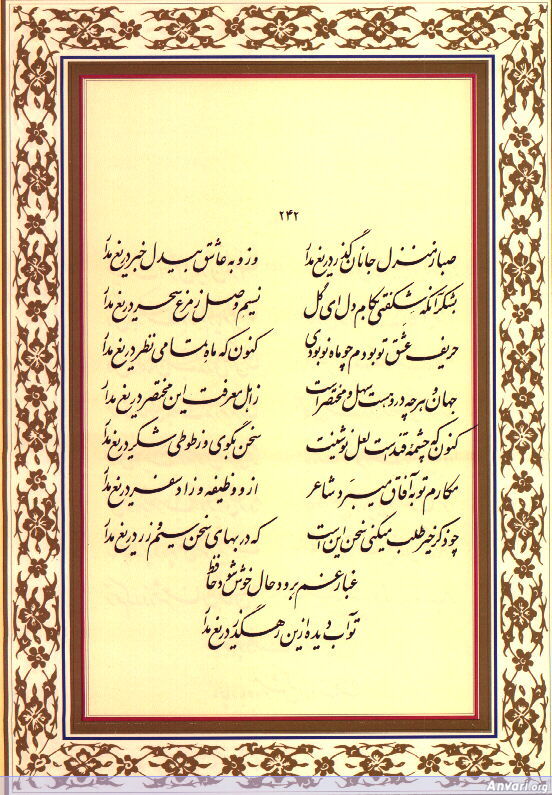 ۲۴۲
صبا ز منزل جانان گذر دریغ مدار وز و به عاشق بیدل خبر دریغ مدار
بشکر آنکه شکفتی بکام دل ای گل نسیم وصل ز مرغ سحر دریغ مدار
حریف عشق تو بودم چو ماه نو بودی کنون که ماه تمامی نظر دریغ مدار
جهان و هر چه در وهست سهل و مختصرست ز اهل معرفت این مختصر دریغ مدار
کنون که چشمهٔ قندست لعل نوشینت سخن بگوی و ز طوطی شکر دریغ مدار
مکارم تو به آفاق میبرد شاعر ازو وظیفه و زاد سفر دریغ مدار
چو ذکر خیر طلب میکنی سخن این است که در بهای سخن سیم و زر دریغ مدار
غبار غم برود حال خوش شود حافظ
تو آب دیده ازین رهگذر دریغ مدار
Anvari.org